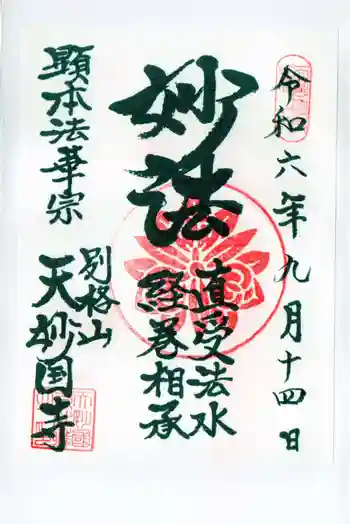 令和六年九月十四日
妙法
直受法水
経巻相承
顕本法華宗
別格山
天妙国寺